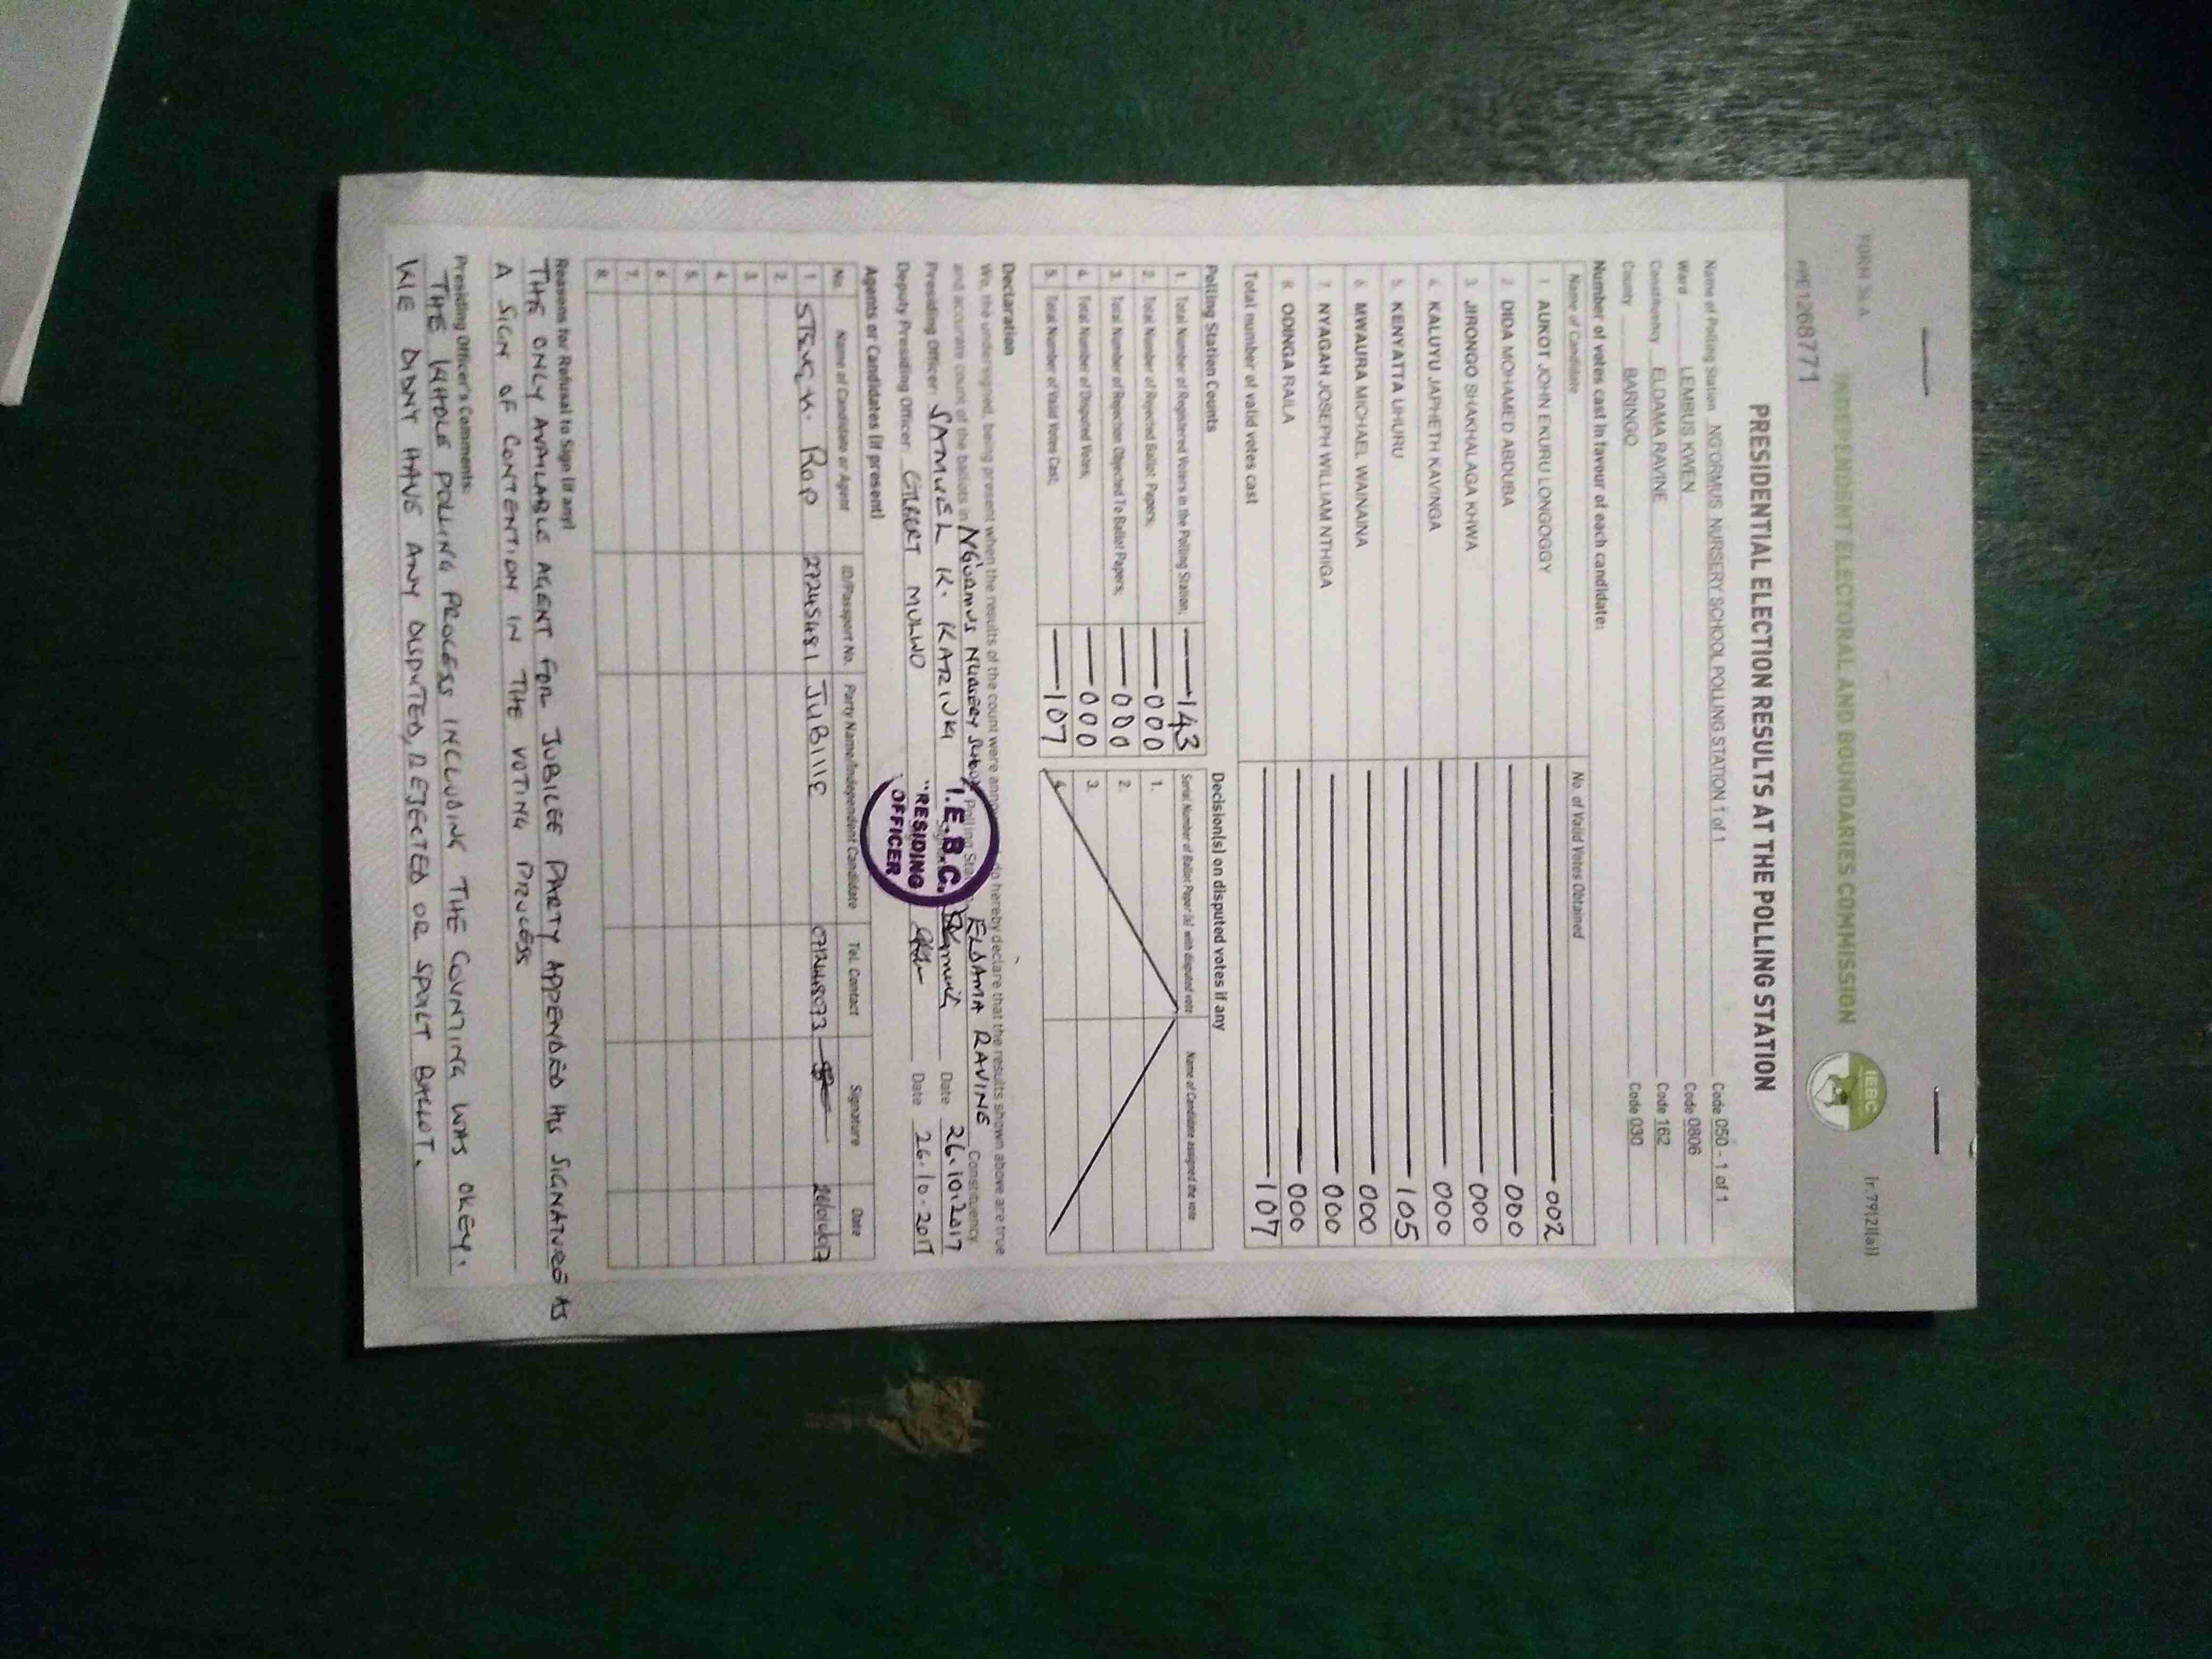 FORM 34A
(r.79(2)(a))
INDEPENDENT ELECTORAL AND BOUNDARIES COMMISSION
IEBC
1268771
PRESIDENTIAL ELECTION RESULTS AT THE POLLING STATION
Name of Polling Station NG'ORMUS NURSERY SCHOOL POLLING STATION 1 of 1 Code 050 - 1 of 1
Ward LEMBUS KWEN Code 0806
Constituency ELDAMA RAVINE Code 162
County BARINGO Code 030
Number of votes cast in favour of each candidate:
Name of Candidate No. of Valid Votes Obtained
1 AUKOT JOHN EKURU LONGOGGY 002
2 DIDA MOHAMED ABDUBA 000
3 JIRONGO SHAKHALAGA KHWA 000
4 KALUYU JAPHETH KAVINGA 000
5 KENYATTA UHURU 105
6 MWAURA MICHAEL WAINAINA 000
7 NYAGAH JOSEPH WILLIAM NTHIGA 000
8 ODINGA RAILA 000
Total number of valid votes cast 107
Polling Station Counts
1. Total Number of Registered Voters in the Polling Station; 143
2. Total Number of Rejected Ballot Papers; 000
3. Total Number of Rejection Objected To Ballot Papers; 000
4. Total Number of Disputed Votes; 000
5. Total Number of Valid Votes Cast; 107
Decision(s) on disputed votes if any
Serial Number of Ballot Paper (s) with disputed vote Name of Candidate assigned the vote
1.
2.
3.
4.
Declaration
We, the undersigned, being present when the results of the count were do hereby declare that the results shown above are true
and accurate count of the ballots in NG'ORMUS NURSERY SCHOOL Polling ELDAMA RAVINE Constituency
Presiding Officer: SAMUEL K. KARIUKI Date 26.10.2017
Deputy Presiding Officer: GILBERT MULWO Date 26.10.2017
I.E.B.C.
RESIDING
OFFICER
Agents or Candidates (if present)
No. Name of Candidate or Agent ID/Passport No. Party Name/Independent Candidate Tel. Contact Signature Date
1 K. ROP 27245481 JUBILLE
2.
3.
4.
5.
6.
7.
8.
Reasons for Refusal to Sign (if any)
THE ONLY AVAILABLE AGENT FOR JUBILEE PARTY APPENDED HIS SIGNATURE AS
A SIGN OF CONTENTION IN THE VOTING PROCESS
Presiding Officer's Comments:
THE WHOLE POLLING PROCESS INCLUDING THE COUNTING WAS OKEY.
WE DIDNT HAVE ANY DISPUTED, REJECTED OR SPOILT BALLOT.